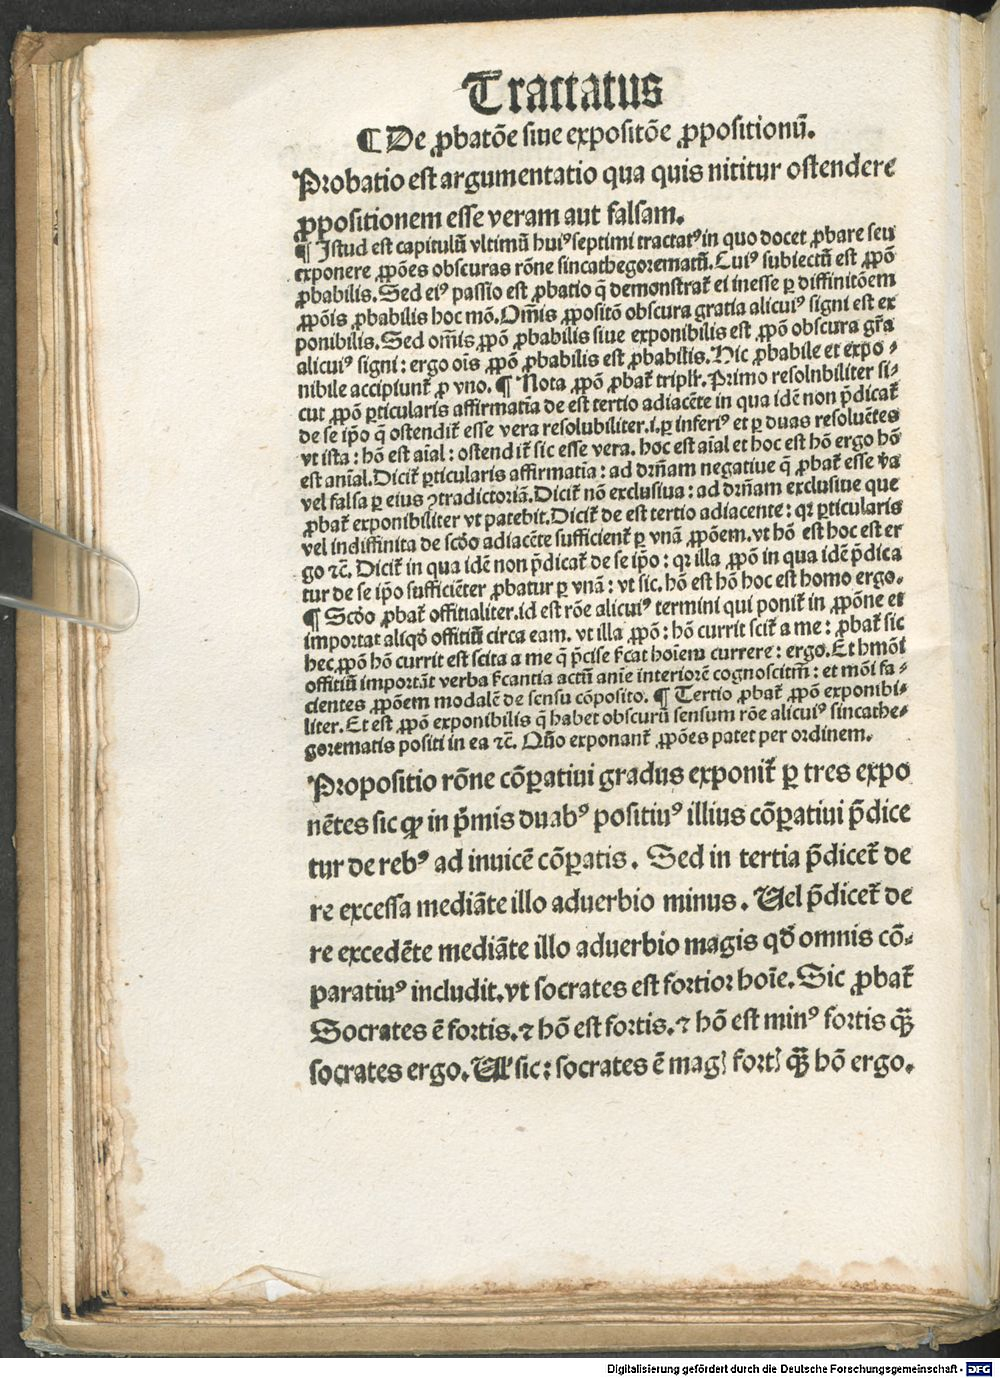 Tractatus
¶ De ꝓbatōe siue expositōe ꝓpositionū.
Probatio est argumentatio qua quis nititur ostendere
ꝓpositionem esse veram aut falsam.
¶ Istud est capitulū vltimū huiꝰ septimi tractatꝰ in quo docet ꝓbare seu
exponere ꝓpōes obscuras rōne sincathegorematū. Cuiꝰ subiectū est ꝓpō
ꝓbabilis. Sed eiꝰ passio est ꝓbatio q̄ demonstrat̄ ei inesse ꝑ diffinitōem
ꝓpōis ꝓbabilis hoc mō. Om̄is ꝓpositō obscura gratia alicuiꝰ signi est ex
ponibilis. Sed om̄is ꝓpō ꝓbabilis siue exponibilis est ꝓpō obscura gr̄a
alicuiꝰ signi: ergo oīs ꝓpō ꝓbabilis est ꝓbabilis. Hic ꝓbabile et expo⸗
nibile accipiunt̄ ꝓ vno. ¶ Nota ꝓpō ꝓbat̄ triplr̄. Primo resolnbiliter si⸗
cut ꝓpō ꝑticularis affirmatīa de est tertio adiacēte in qua idē non p̄dicat̄
de se ip̄o q̄ ostendit̄ esse vera resolubiliter .i. ꝑ inferiꝰ et ꝑ duas resoluētes
vt ista: hō est aīal: ostendit̄ sic esse vera. hoc est aīal et hoc est hō ergo hō
est anīal. Dicit̄ ꝑticularis affirmatīa: ad dr̄n̄am negatiue q̄ ꝓbat̄ esse v̄a
vel falsa ꝑ eius ꝯtradictoriā. Dicit̄ nō exclusiua: ad dr̄n̄am exclusiue que
ꝓbat̄ exponibiliter vt patebit. Dicit̄ de est tertio adiacente: qꝛ ꝑticularis
vel indiffinita de scd̄o adiacēte sufficient̄ ꝑ vnā ꝓpōem. vt hō est hoc est er
go ⁊c̄. Dicit̄ in qua idē non p̄dicat̄ de se ip̄o: qꝛ illa ꝓpō in qua idē p̄dica
tur de se ip̄o sufficiēter ꝓbatur ꝑ vnā: vt sic. hō est hō hoc est homo ergo.
¶ Scd̄o ꝓbat̄ offitialiter. id est rōe alicuiꝰ termini qui ponit̄ in ꝓpōne et
importat aliqd̄ offitiū circa eam. vt illa ꝓpō: hō currit scit̄ a me: ꝓbat̄ sic
hec ꝓpō hō currit est scita a me q̄ p̄cise s̄cat hoīem currere: ergo. Et hmōi
offitiū importāt verba s̄cantia actū anīe interiorē cognoscitm̄: et mōi fa⸗
cientes ꝓpōem modalē de sensu cōposito. ¶ Tertio ꝓbat̄ ꝓpō exponibi⸗
liter. Et est ꝓpō exponibilis q̄ habet obscurū sensum rōe alicuiꝰ sincathe⸗
gorematis positi in ea ⁊c̄. Qūo exponant̄ ꝓpōes patet per ordinem.
Propositio rōne cōꝑatiui gradus exponit̄ ꝑ tres expo
nētes sic ꝙ in p̄mis duabꝰ positiuꝰ illius cōꝑatiui p̄dice
tur de rebꝰ ad inuicē cōꝑatis. Sed in tertia p̄dicet̄ de
re excessa mediāte illo aduerbio minus. Uel p̄dicet̄ de
re excedēte mediāte illo aduerbio magis qd̄ omnis cō⸗
paratiuꝰ includit. vt socrates est fortior hoīe. Sic ꝓbat̄
Socrates ē fortis. ⁊ hō est fortis. ⁊ hō est minꝰ fortis qꝫ̄
socrates ergo. Ul̓ sic: socrates ē magꝭ fortꝭ qꝫ̄ hō ergo.
Digitalisierung gefördert durch die Deutsche Forschungsgemeinschaft - DFG